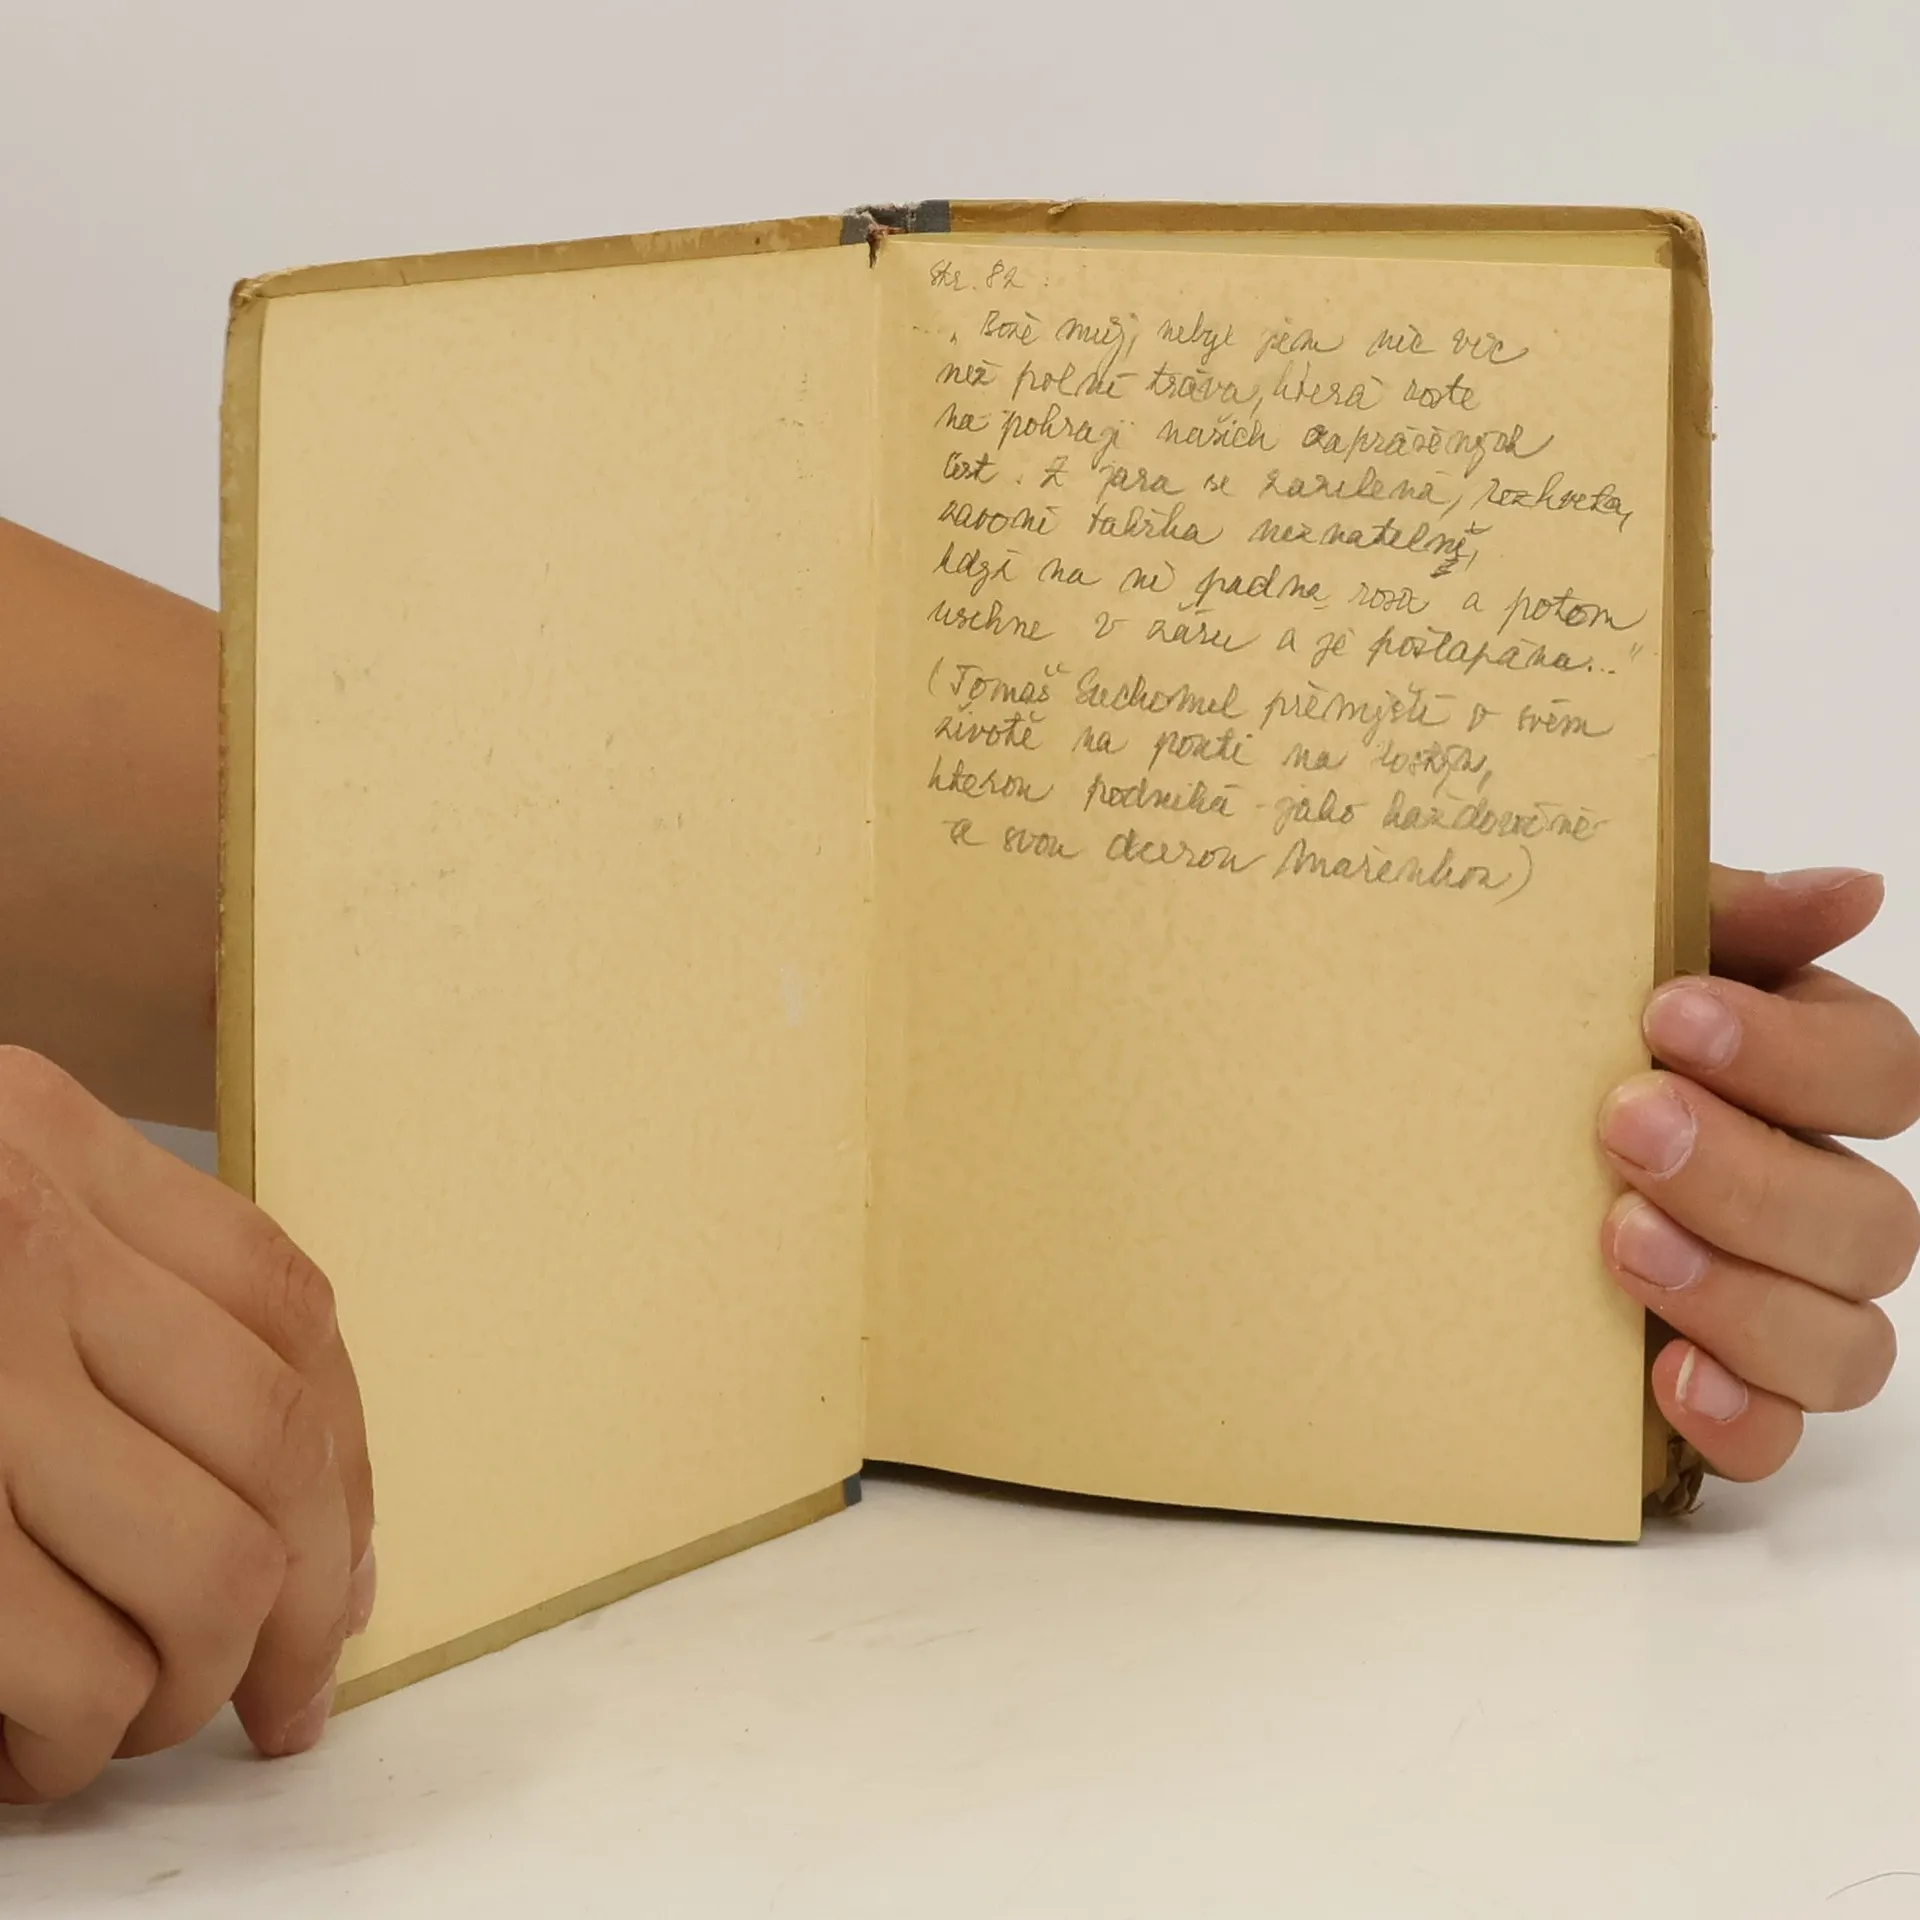 Str. 82 :
„Bože můj, nebyl jsem nic víc
než polní tráva, která roste
na pokraji našich zaprášených
cest. Z jara se zazelená, rozkvete,
zavoní takřka neznatelně,
když na ni padne rosa a potom
uschne v záři a je pošlapána..."
(Tomáš Suchomel přemýšlí o svém
životě na pouti na Hostýn,
kterou podniká - jako každoročně -
se svou dcerou Mařenkou)